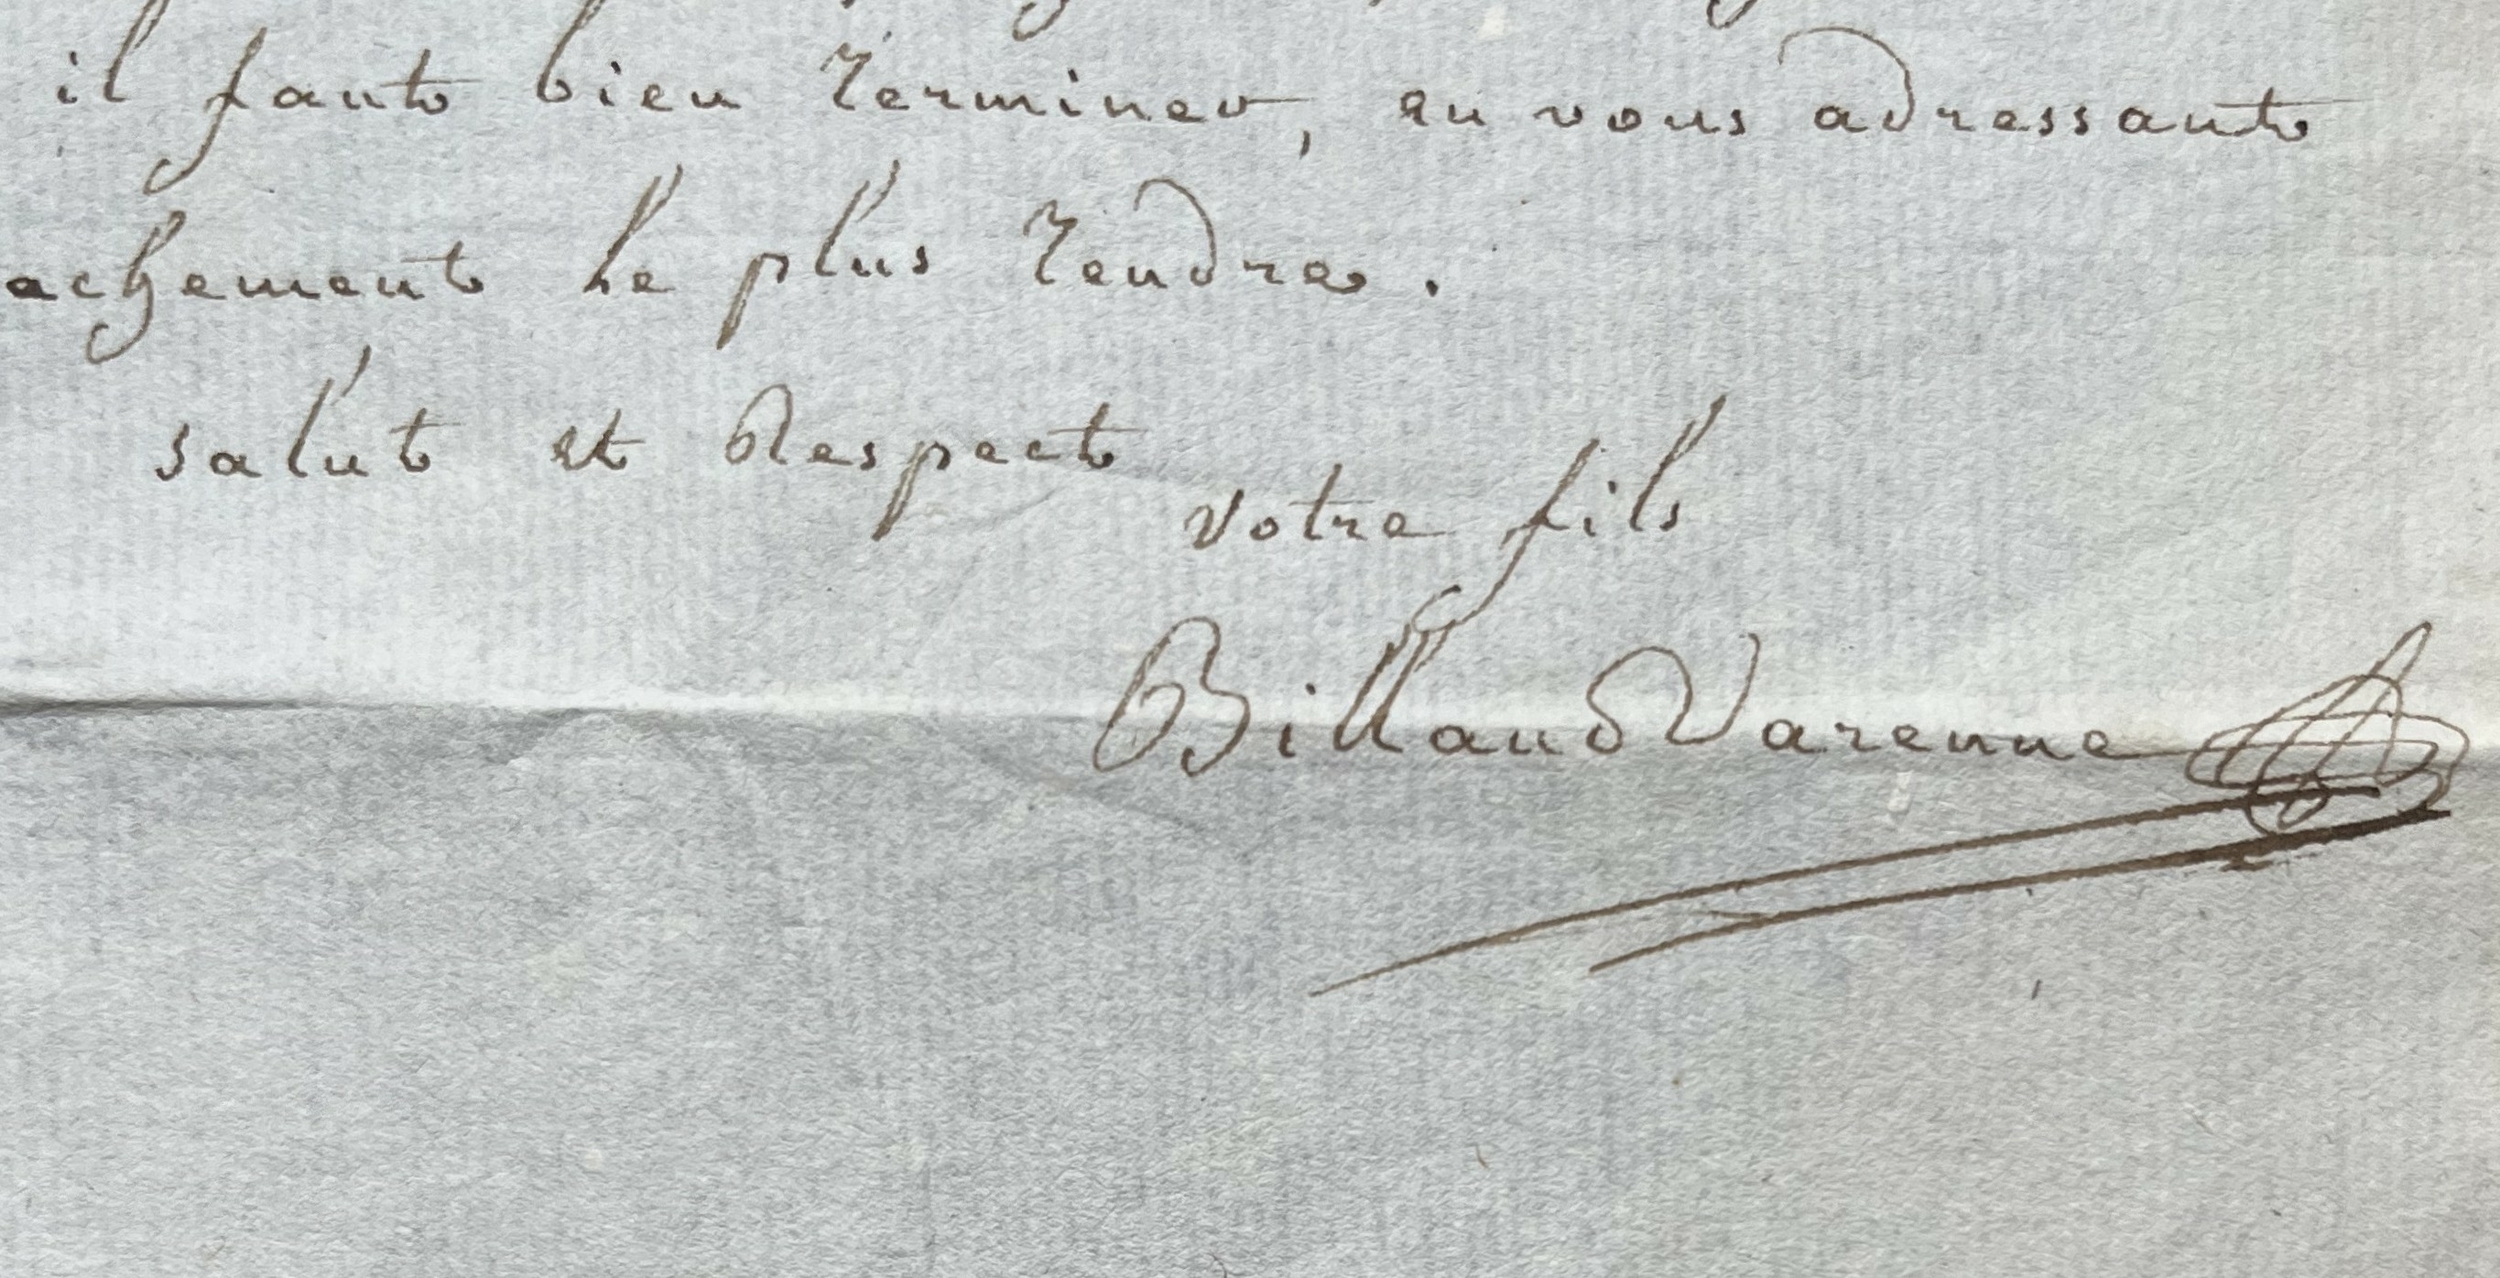 il faut bien terminer, en vous adressant
achement le plus tendre.
salut et Respect
votre fils
Billaud Varenne